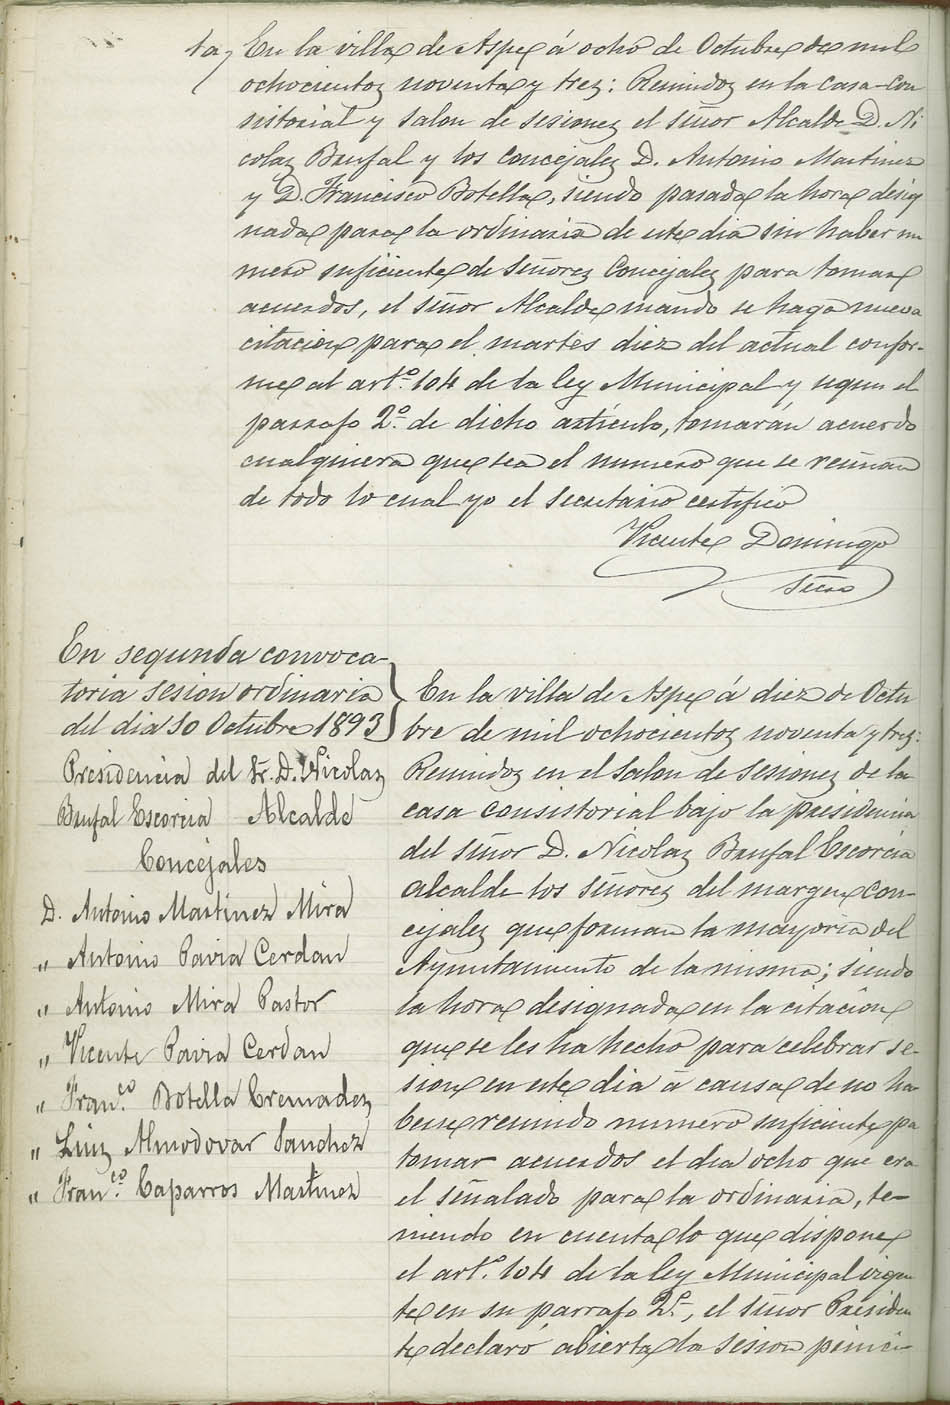 ta, En la villa de Aspe á ocho de Octubre de mil
ochocientos noventa y tres: Reunidos en la casa-con
sistorial y salon de sesiones el señor Alcalde D. Ni
colas Brufal y los concejales D. Antonio Martinez
y D. Francisco Botella, siendo pasada la hora desig
nada para la ordinaria de este dia sin haber nu
mero suficiente de señores Concejales para tomar
acuerdos, el señor Alcalde mandó se haga nueva
citacion para el martes diez del actual confor-
me al artº 104 de la ley Municipal y segun el
parrafo 2º de dicho artículo, tomarán acuerdo
cualquiera que sea el numero que se reunan
de todo lo cual yo el secretario certifico
Vicente Domingo
Secro
En segunda convoca-
toria sesion ordinaria
del dia 10 Octubre 1893
Presidencia del Sr. D. Nicolas
Brufal Escorcia Alcalde
Concejales
D. Antonio Martinez Mira
" Antonio Pavia Cerdan
" Antonio Mira Pastor
" Vicente Pavia Cerdan
" Franco. Botella Cremades
" Luis Almodovar Sanchez
" Franco. Caparros Martinez
En la villa de Aspe á diez de Octu
bre de mil ochocientos noventa y tres:
Reunidos en el salon de sesiones de la
casa consistorial bajo la presidencia
del señor D. Nicolas Brufal Escorcia
alcalde los señores del margen con-
cejales que forman la mayoria del
Ayuntamiento de la misma; siendo
la hora designada en la citacion
que se les ha hecho para celebrar se-
sion en este dia á causa de no ha
berse reunido numero suficiente pa
tomar acuerdos el dia ocho que era
el señalado para la ordinaria, te-
niendo en cuenta lo que dispone
el artº. 104 de la ley Municipal vigen
te en su parrafo 2º, el señor Presiden
te declaró abierta la sesion princi-